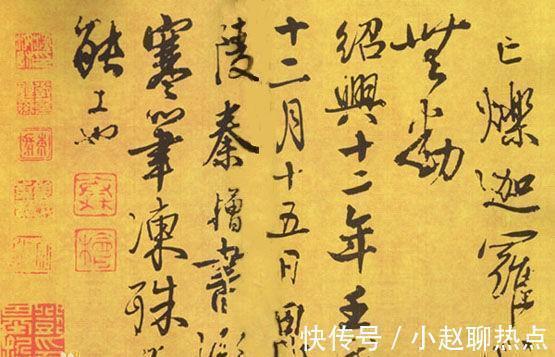 亡爍迦羅
無動
紹興十二年壬
十二月十五日
陵秦檜書
寒筆凍殊
能工也
快传号 / 小赵聊热点